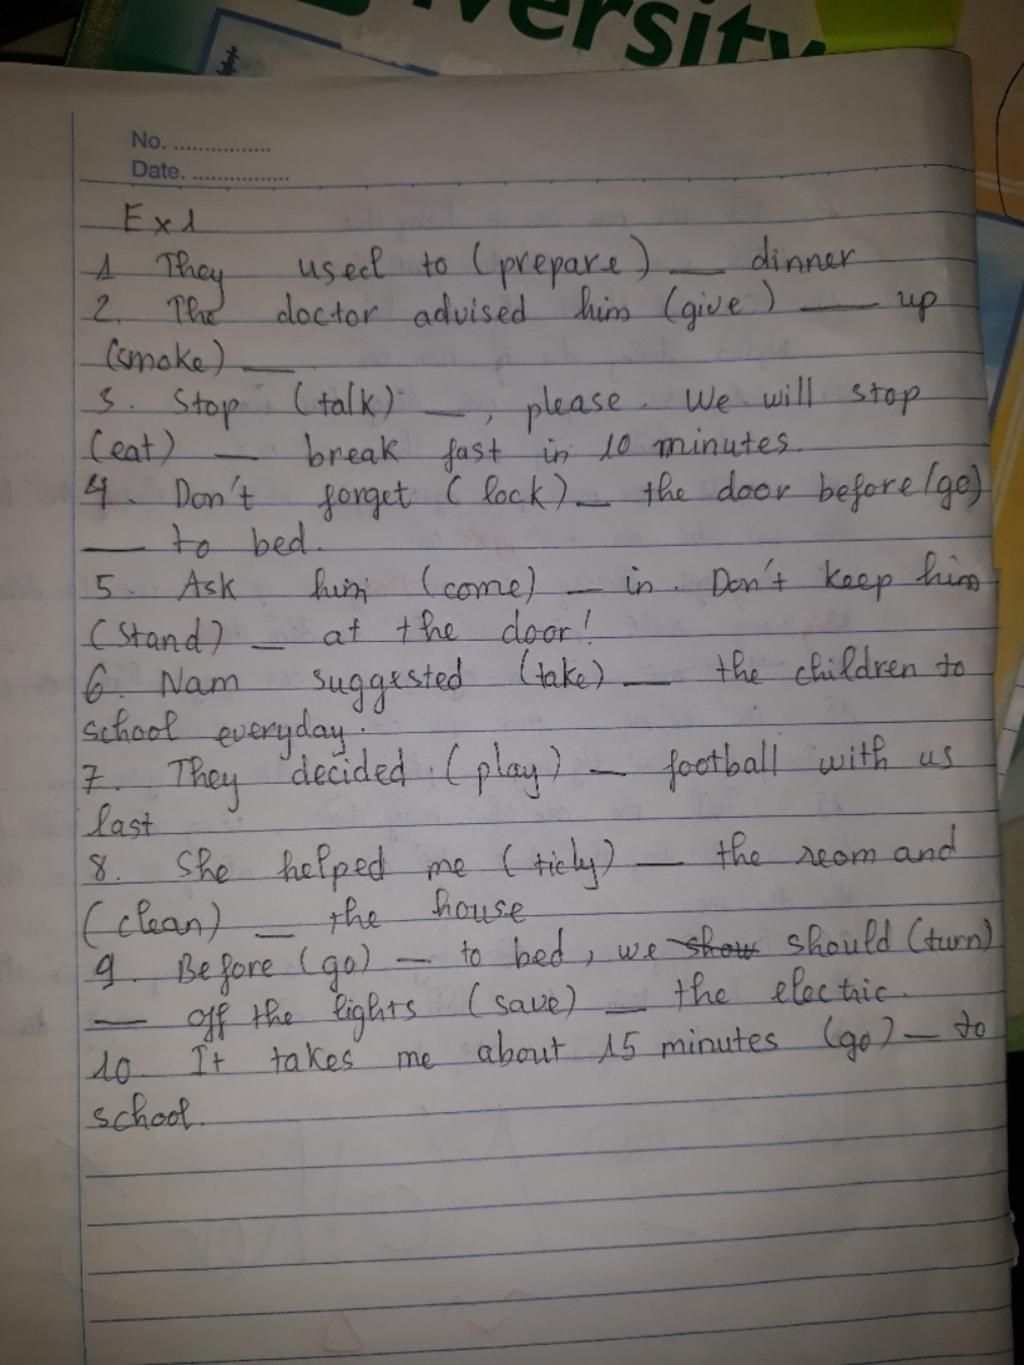 versity
No. ...............
Date. ...............
Ex1
1 They used to (prepare) __ dinner
2. The doctor advised him (give) __ up
(smoke) __
3. Stop (talk) __, please. We will stop
(eat) __ break fast in 10 minutes.
4. Don't forget (lock) __ the door before (go)
__ to bed.
5. Ask him (come) __ in. Don't keep him
(stand) __ at the door!
6. Nam suggested (take) __ the children to
school everyday.
7. They decided (play) __ football with us
last
8. She helped me (tidy) __ the room and
(clean) __ the house
9. Before (go) __ to bed, we show should (turn)
__ off the lights (save) __ the electric.
10. It takes me about 15 minutes (go) __ to
school.